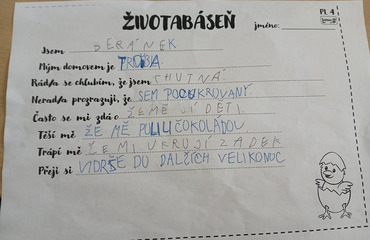 ŽIVOTABÁSEŇ
Pl. 4
jméno:
Jsem BERÁNEK
Mým domovem je TROUBA
Rád/a se chlubím, že jsem CHUTNÁ
Nerad/a prozrazuji, že SEM POCUKROVANÝ
Často se mi zdá o ŽE MĚ JÍ DĚTI
Těší mě ŽE MĚ POLILI ČOKOLÁDOU
Trápí mě ŽE MI UKROJÍ ZADEK
Přeji si VIDRŠE DO DALŠÍCH VELIKONOC